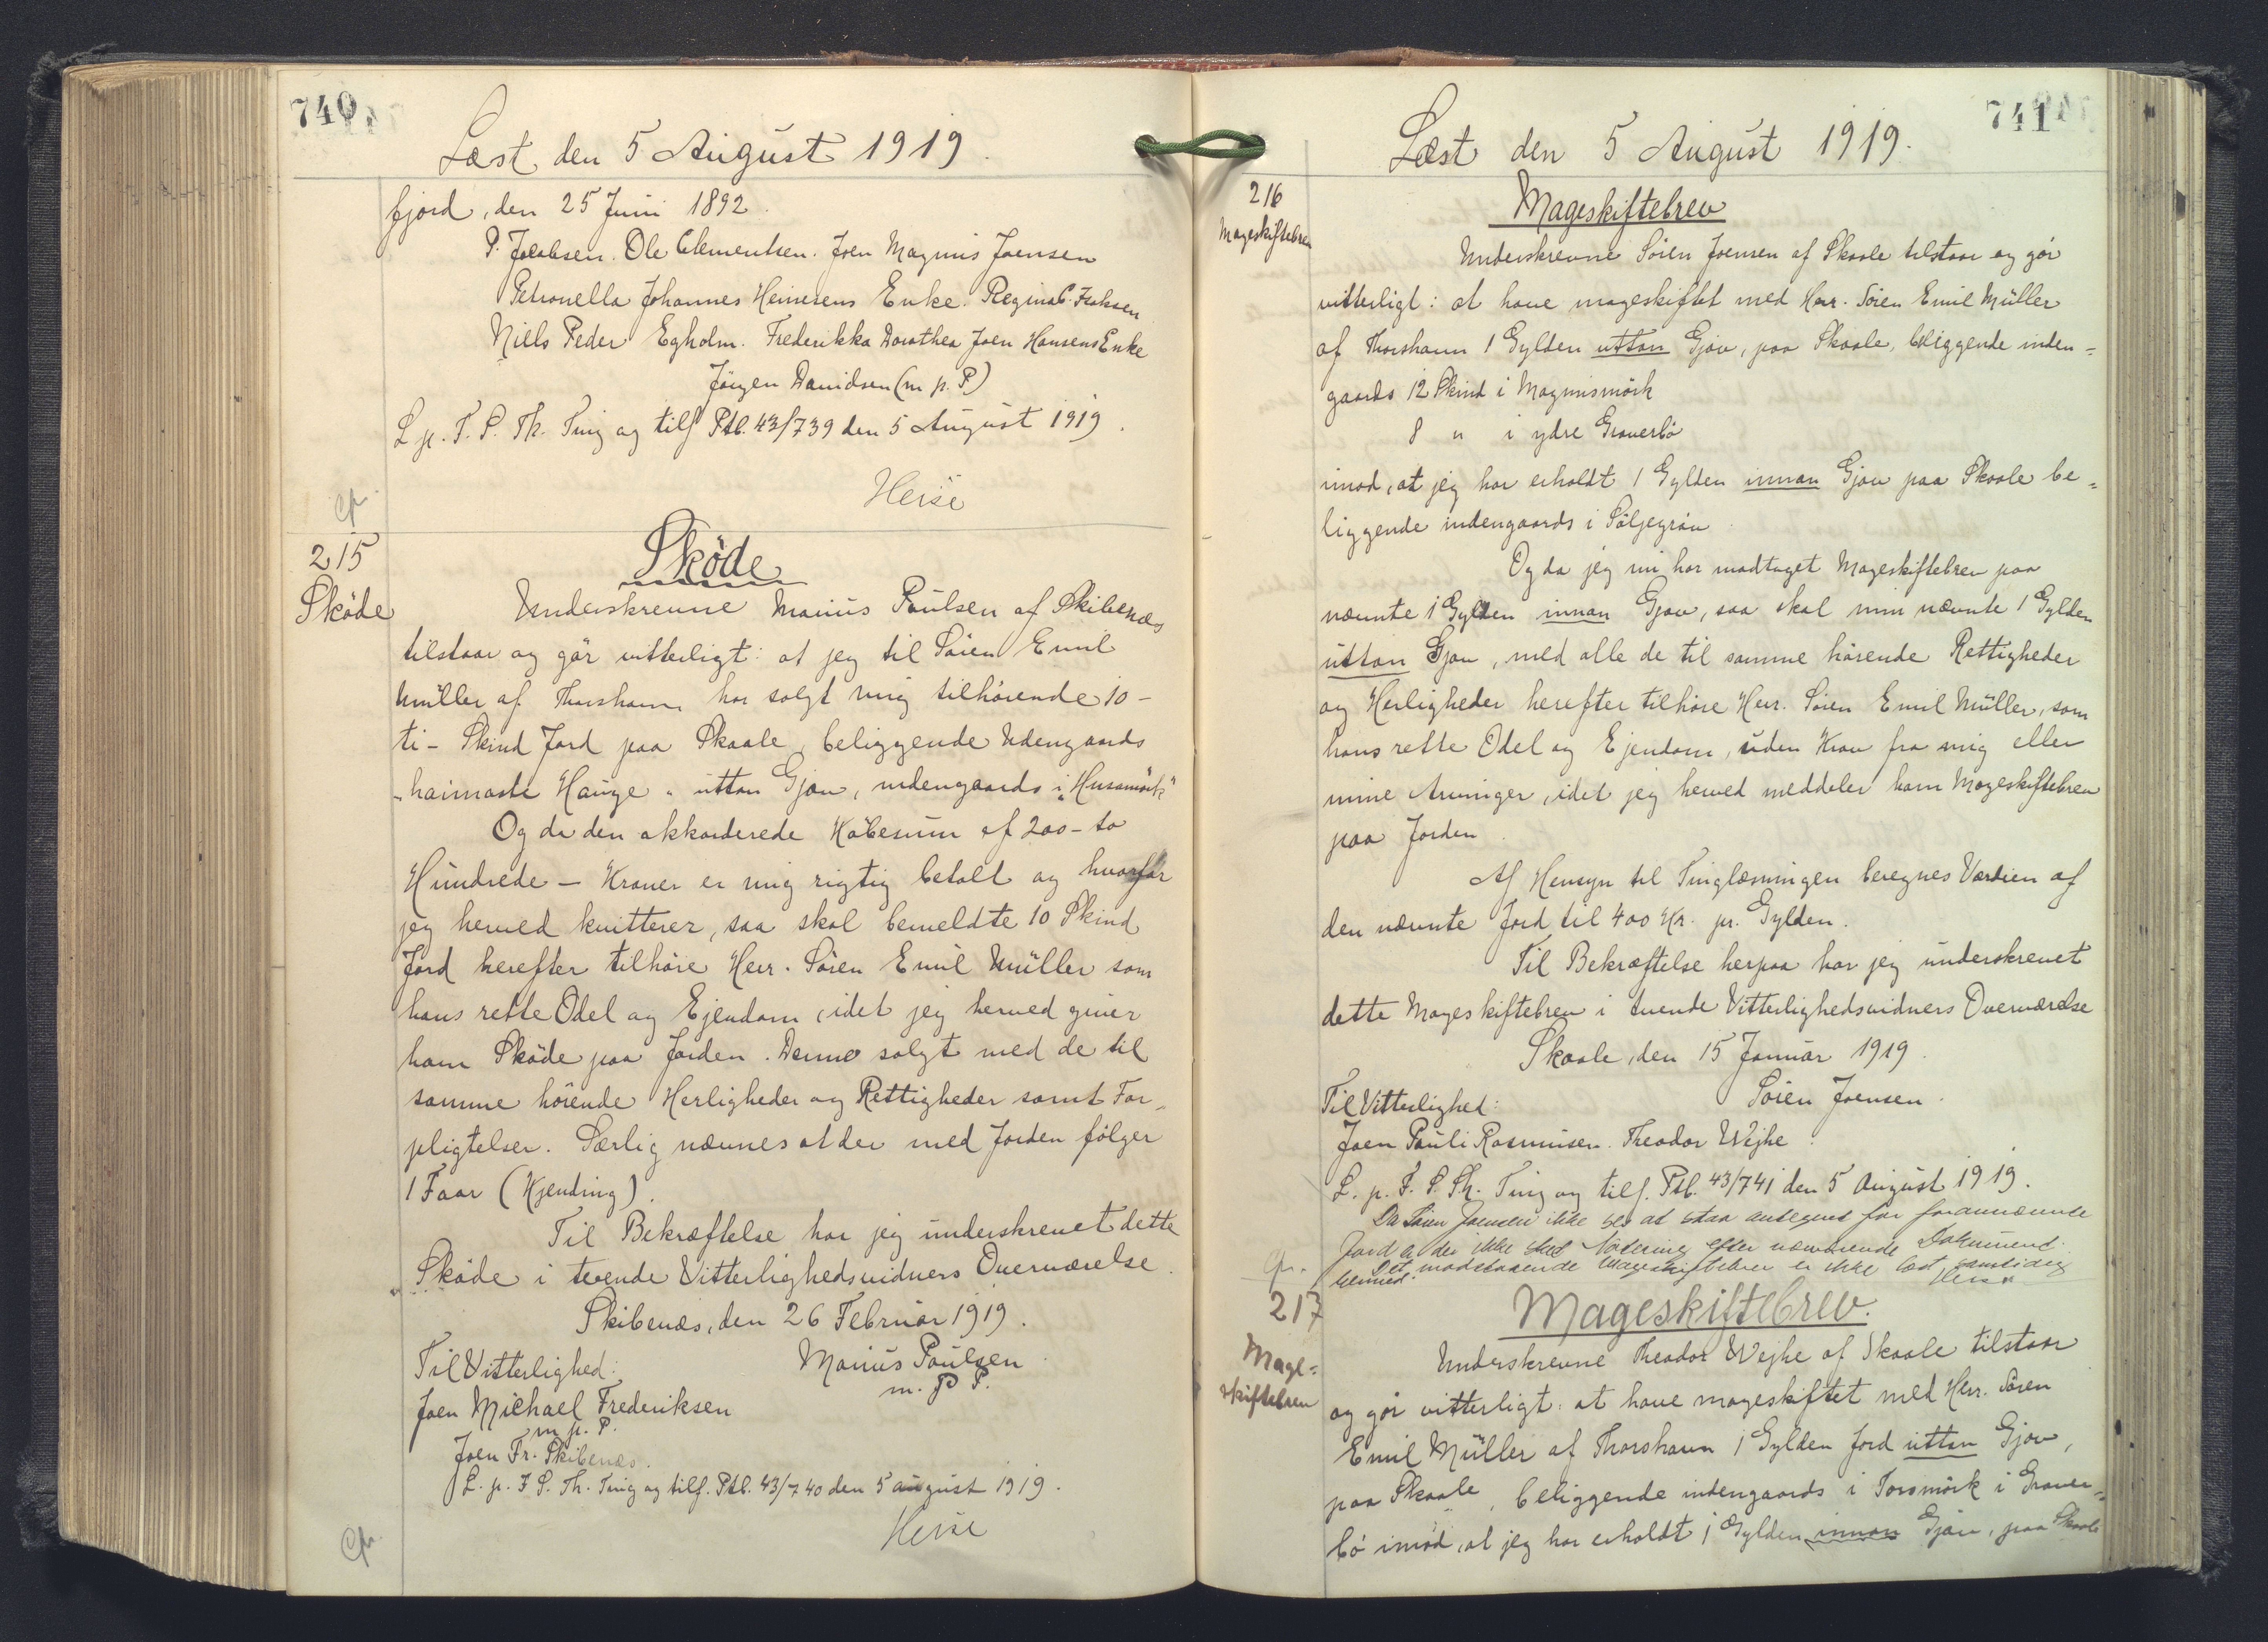 740
Læst den 5 August 1919.
fjord, den 25 Juni 1892.
P. Jacobsen. Ole Clementsen. Joen Magnus Joensen
Petronella Johannes Heinesens Enke. Regina C. Isaksen
Niels Peder Egholm. Frederikka Dorothea Joen Hansens Enke
Jörgen Davidsen (m. p. P)
L. p. F. S. Th. Ting og tilf Ptb. 43/739 den 5 August 1919.
Heise
Cfr.
215
Sköde
Sköde
Underskrevne Marius Poulsen af Skibenæs
tilstaar og gör vitterligt: at jeg til Sören Emil
Müller af Thorshavn har solgt mig tilhörende 10 -
ti - Skind Jord paa Skaale, beliggende Udengaards
"haimasta Hauge" uttan Gjov, indengaards i "Husamörk"
Og da den akkorderede Köbesum af 200 - to
Hundrede - Kroner er mig rigtig betalt og hvorfor
jeg herved kvitterer, saa skal bemeldte 10 Skind
Jord herefter tilhöre Herr. Sören Emil Müller som
hans rette Odel og Ejendom, idet jeg herved giver
ham Sköde paa Jorden. Denne solgt med de til
samme hörende Herligheder og Rettigheder samt For-
pligtelser. Særlig nævnes at der med Jorden fölger
1 Faar (Kjendning).
Til Bekræftelse har jeg underskrevet dette
Sköde i tvende Vitterlighedsvidners Overværelse.
Skibenæs, den 26 Februar 1919.
Til Vitterlighed: Marius Poulsen
m. p P.
Joen Michael Frederiksen
m. p. P.
Joen Fr. Skibenæs.
L. p. F S. Th. Ting og tilf. Ptb. 43/740 den 5 august 1919.
Heise
Cfr.
741
Læst den 5 August 1919.
216
Mageskiftebrev
Mageskiftebrev
Underskrevne Sören Joensen af Skaale tilstaar og gör
vitterligt: at have mageskiftet med Herr. Sören Emil Müller
af Thorshavn 1 Gylden uttan Gjov, paa Skaale, beliggende inden-
gaards 12 Skind i Magnusmörk
8 " i ydre Graverbö
imod, at jeg har erholdt 1 Gylden innan Gjov paa Skaale be-
liggende indengaards i Söljegröv.
Og da jeg nu har modtaget Mageskiftebrev paa
nævnte 1 Gylden innan Gjov, saa skal min nævnte 1 Gylden
uttan Gjov, med alle de til samme hörende Rettigheder
og Herligheder herefter tilhöre Herr. Sören Emil Müller, som
hans rette Odel og Ejendom, uden Krav fra mig eller
mine Arvinger, idet jeg herved meddeler ham Mageskiftebrev
paa Jorden.
Af Hensyn til Tinglæsningen beregnes Værdien af
den nævnte Jord til 400 Kr. pr. Gylden.
Til Bekræftelse herpaa har jeg underskrevet
dette Mageskiftebrev i tvende Vitterlighedsvidners Overværelse
Skaale, den 15 Januar 1919.
Til Vitterlighed: Sören Joensen.
Joen Pauli Rasmussen. Theodor Wejhe.
L. p. F. S. Th. Ting og tilf. Ptb. 43/741 den 5 August 1919.
Da Sören Joensen ikke ses at staa antegnet for forannævnte
Jord er der ikke sket Notering efter nærværende Dokument.
Det modstaaende Mageskiftebrev er ikke læst samtidig
hermed. Heise
Cfr.
217
Mage-
skiftebrev
Mageskiftebrev.
Underskrevne Theodor Wejhe af Skaale tilstaar
og gör vitterligt: at have mageskiftet med Herr. Sören
Emil Müller af Thorshavn 1 Gylden Jord uttan Gjov,
paa Skaale, beliggende indengaards i Torsmörk i Graver-
bö imod, at jeg har erholdt 1 Gylden innan Gjov, paa Skaale